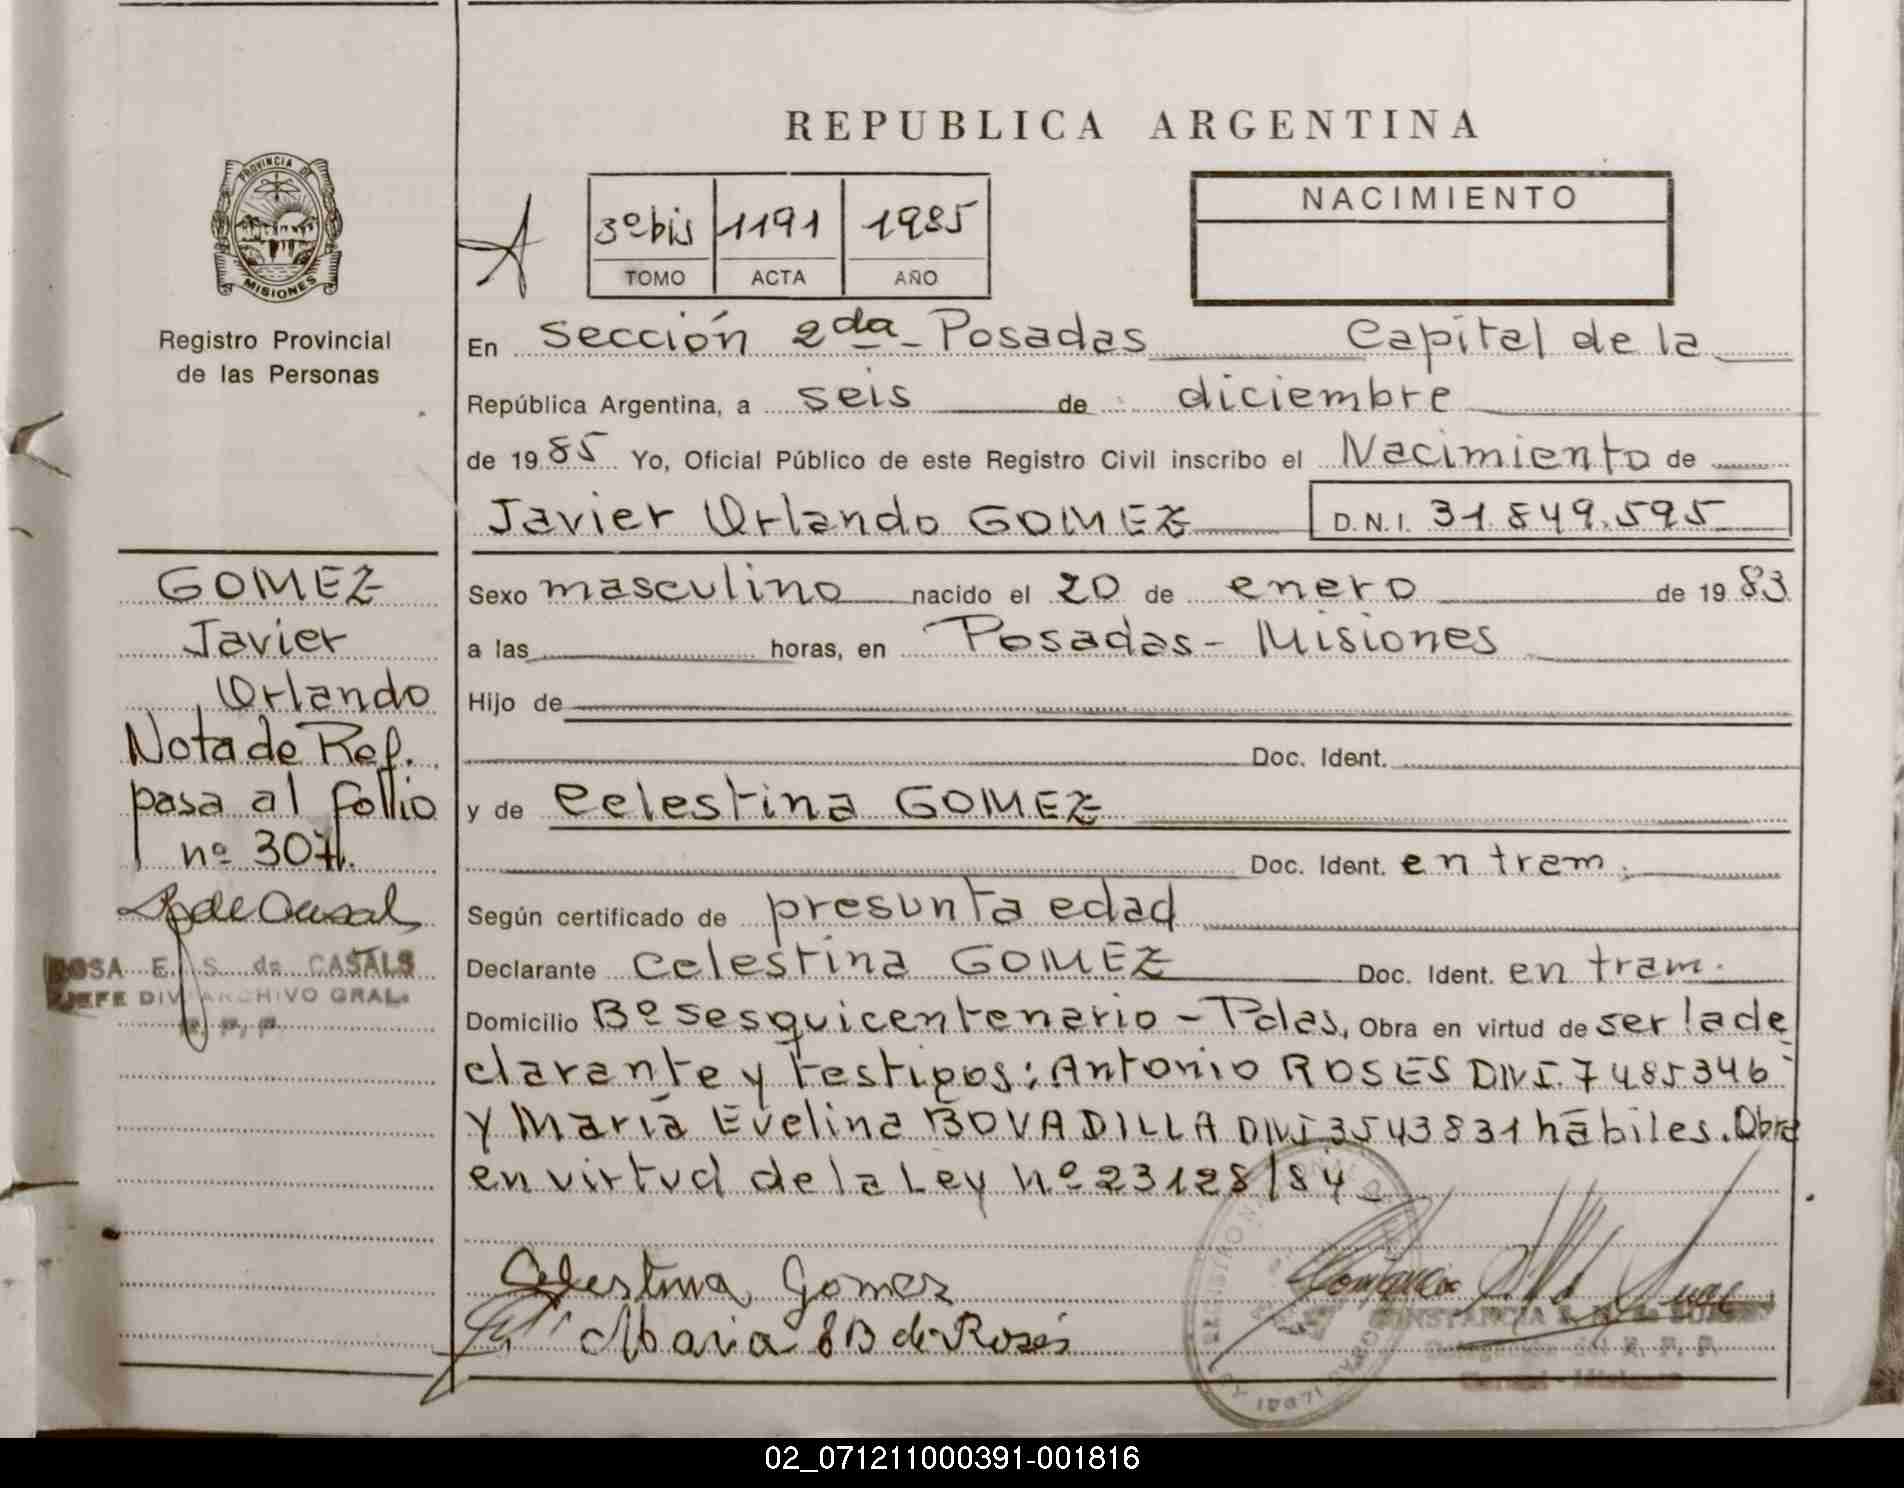 REPUBLICA ARGENTINA
PROVINCIA DE
MISIONES
Registro Provincial
de las Personas
3º bis 1191 1985
TOMO ACTA AÑO
NACIMIENTO
En Sección 2da - Posadas Capital de la
República Argentina, a seis de diciembre
de 1985 Yo, Oficial Público de este Registro Civil inscribo el Nacimiento de
Javier Orlando GOMEZ D.N.I. 31.849.595
GOMEZ
Javier
Orlando
Nota de Ref.
pasa al folio
nº 307.
ROSA E. S. de CASALS
JEFE DIV. ARCHIVO GRAL.
R. P. P.
Sexo masculino nacido el 20 de enero de 1983
a las horas, en Posadas - Misiones
Hijo de
Doc. Ident.
y de Celestina GOMEZ
Doc. Ident. en tram.
Según certificado de presunta edad
Declarante Celestina GOMEZ Doc. Ident. en tram.
Domicilio Bº Sesquicentenario - Pdas, Obra en virtud de ser la de
clarante y testigos: Antonio ROSES DNI. 7485346
y María Evelina BOVADILLA DNI 3543831 hábiles. Obra
en virtud de la Ley nº 23128/84
Celestina Gomez
Maria E B de Roses
CONSTANCIA
R. P. P.
02_071211000391-001816